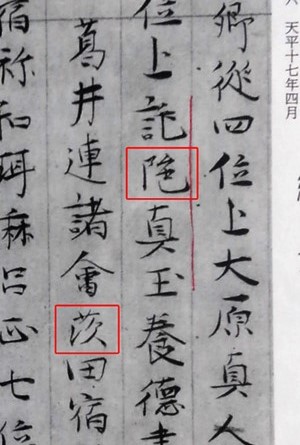 天平十七年四月
卿從四位上大原真人
位上託陁真玉養德
葛井連諸會茨田宿
宿祢和珥麻呂正七位